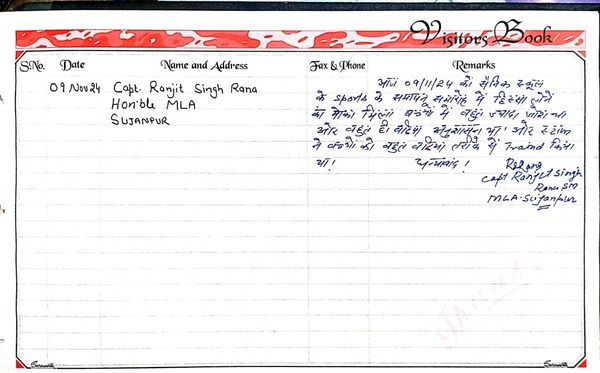 Visitors Book
S.No. Date Name and Address Fax & Phone Remarks
09 Nov 24 Capt. Ranjit Singh Rana
Hon'ble MLA
SUJANPUR
आज 09/11/24 को सैनिक स्कूल
के sports के समापन समारोह में हिस्सा लेने
का मौका मिला बच्चों में बहुत ज्यादा जोश था
और बहुत ही बढ़िया अनुशासन था। और स्टाफ
ने बच्चों को बहुत बढ़िया तरीके से Traind किया
था। धन्यवाद!
Capt Ranjit Singh
Rana SM
MLA-Sujanpur
Saraswati Saraswati